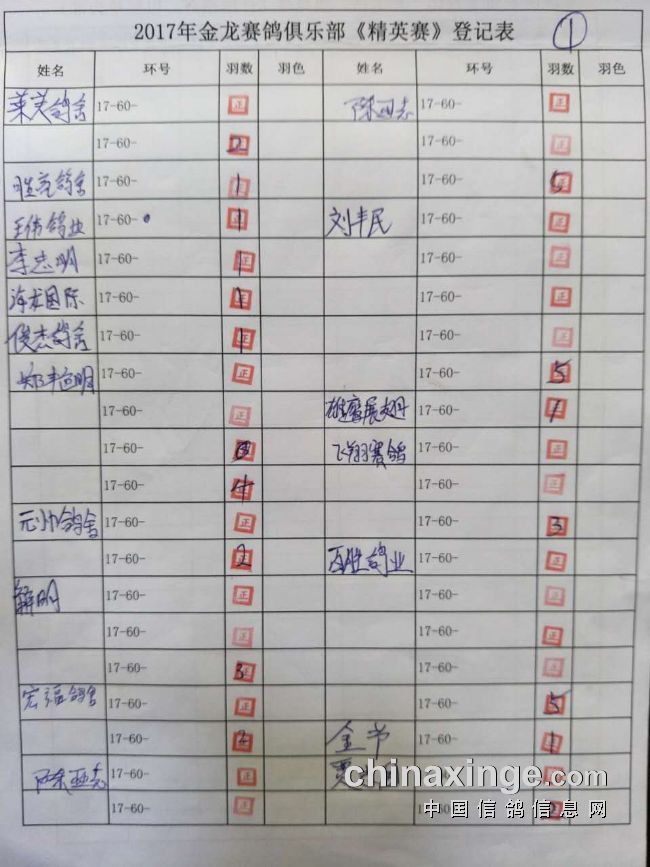 2017年金龙赛鸽俱乐部《精英赛》登记表 ①
姓名 环号 羽数 羽色 姓名 环号 羽数 羽色
莱芙鸽舍 17-60- 正 陈亚志 17-60- 正
17-60- 2 17-60- 正
17-60- 1 17-60- 5
王伟鸽业 17-60- 1 刘丰民 17-60- 正
李志明 17-60- 1 17-60- 正
海龙国际 17-60- 1 17-60- 正
俊杰鸽舍 17-60- 1 17-60- 正
17-60- 正 17-60- 5
17-60- 正 雄鹰展翅 17-60- 1
17-60- 飞翔赛鸽 17-60- 正
17-60- 4 17-60- 正
元帅鸽舍 17-60- 正 17-60- 3
17-60- 2 百胜鸽业 17-60- 正
解明 17-60- 正 17-60- 正
17-60- 正 17-60- 正
17-60- 3 17-60- 正
宏福鸽舍 17-60- 正 17-60- 5
17-60- 2 金节 17-60- 1
陈亚志 17-60- 正 贾 17-60-
17-60- 正 17-60-
chinaxinge.com
中国信鸽信息网